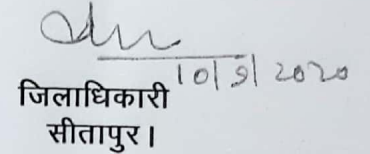 10/9/2020
जिलाधिकारी
सीतापुर।